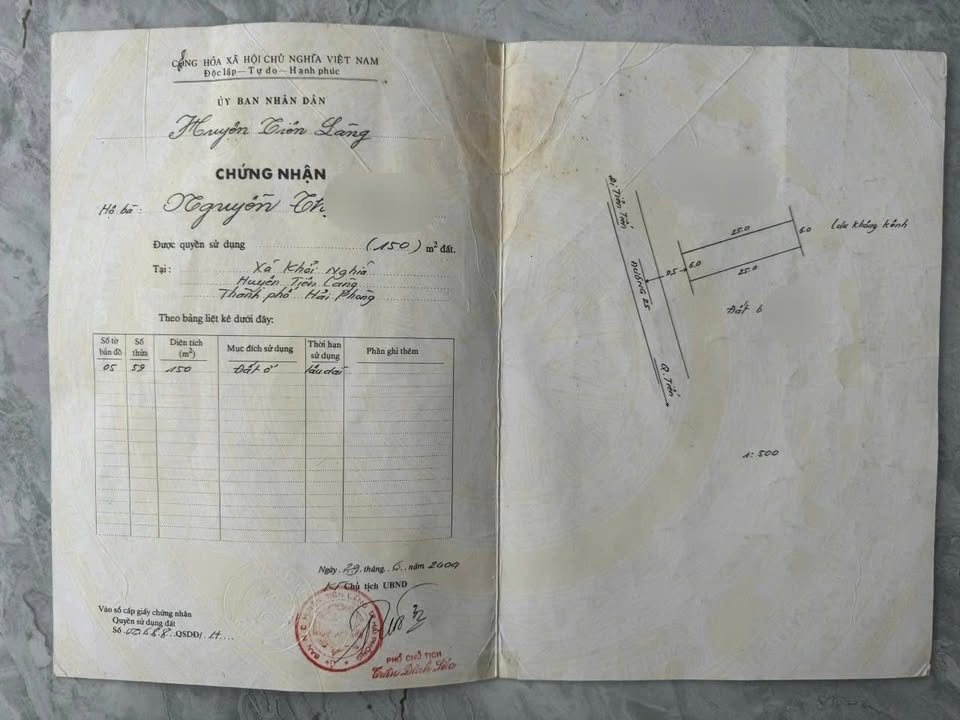 CỘNG HÒA XÃ HỘI CHỦ NGHĨA VIỆT NAM
Độc lập - Tự do - Hạnh phúc
ỦY BAN NHÂN DÂN
Huyện Tiên Lãng
CHỨNG NHẬN
Hộ bà: Nguyễn Thị
Được quyền sử dụng (150) m² đất.
Tại: Xã Khởi Nghĩa
Huyện Tiên Lãng
Thành phố Hải Phòng
Theo bảng liệt kê dưới đây:
Số tờ bản đồ Số thửa Diện tích (m²) Mục đích sử dụng Thời hạn sử dụng Phần ghi thêm
05 59 150 Đất ở lâu dài
Ngày 29 tháng 6 năm 2000
KT Chủ tịch UBND
Vào sổ cấp giấy chứng nhân
Quyền sử dụng đất
Số QSDĐ/ H
PHÓ CHỦ TỊCH
Trần Đình
ĐƯỜNG 25
25.0
6.0
Lưu không kênh
9.5
6.0
25.0
Đất
1:500